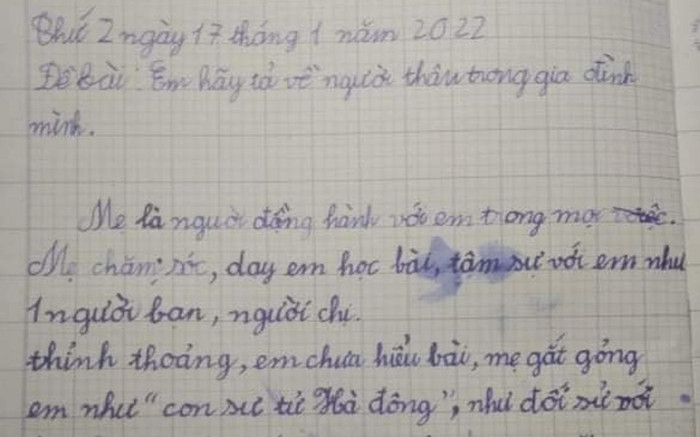 Thứ 2 ngày 17 tháng 1 năm 2022
Đề bài: Em hãy tả về người thân trong gia đình
mình.
Mẹ là người đồng hành với em trong mọi việc.
Mẹ chăm sóc, dạy em học bài, tâm sự với em như
1 người bạn, người chị.
thỉnh thoảng, em chưa hiểu bài, mẹ gắt gỏng
em như "con sư tử Hà đông", như đối sử với